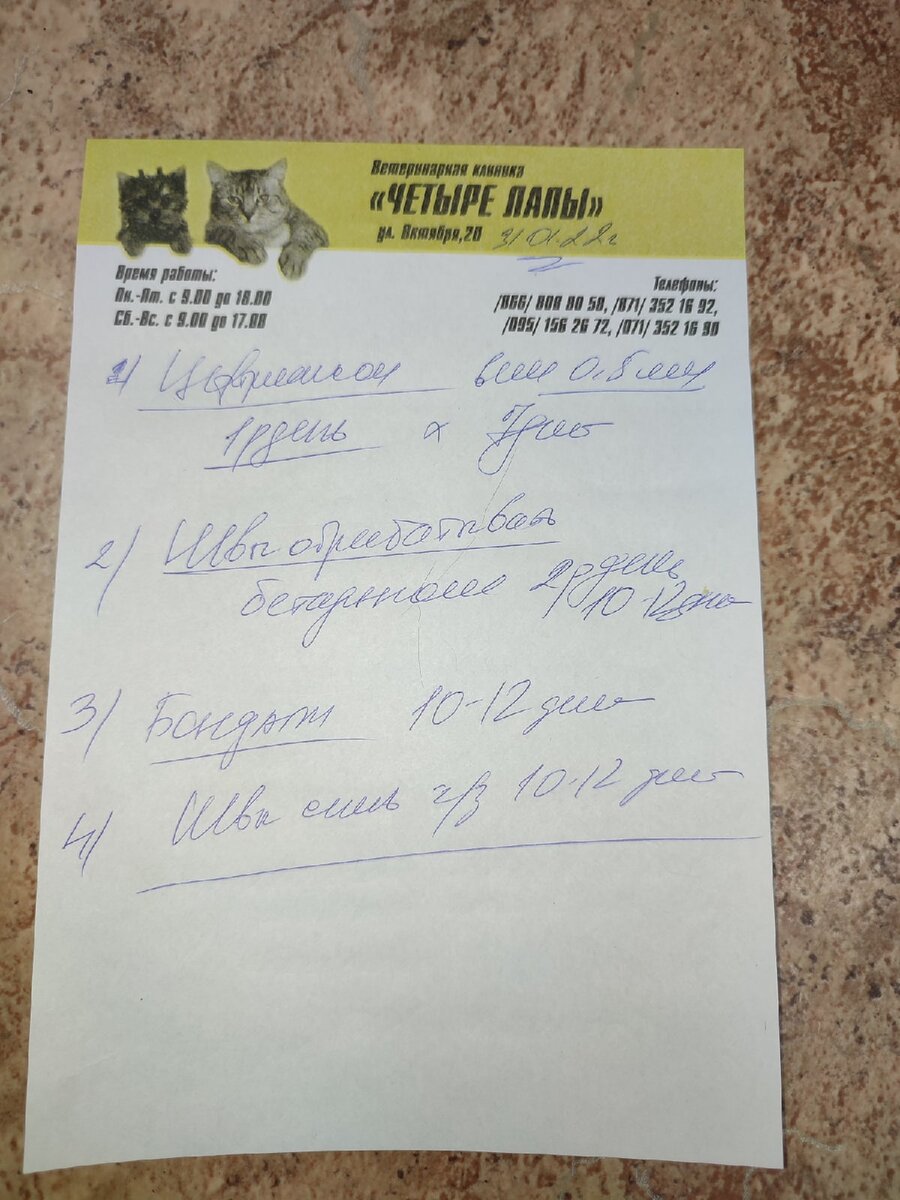 Ветеринарная клиника
«ЧЕТЫРЕ ЛАПЫ»
ул. Октября,20 31.01.22г
Время работы:
Пн.-Пт. с 9.00 до 18.00
Сб.-Вс. с 9.00 до 17.00
Телефоны:
/066/ 808 80 58, /071/ 352 16 92,
/095/ 156 26 72, /071/ 352 16 90
1/ 0.5 мл
1р день х 7 дней
2/ Швы обрабатывать
бетадином 2р день
10-12 дней
3/ Бандаж 10-12 дней
4/ Швы снять ч/з 10-12 дней